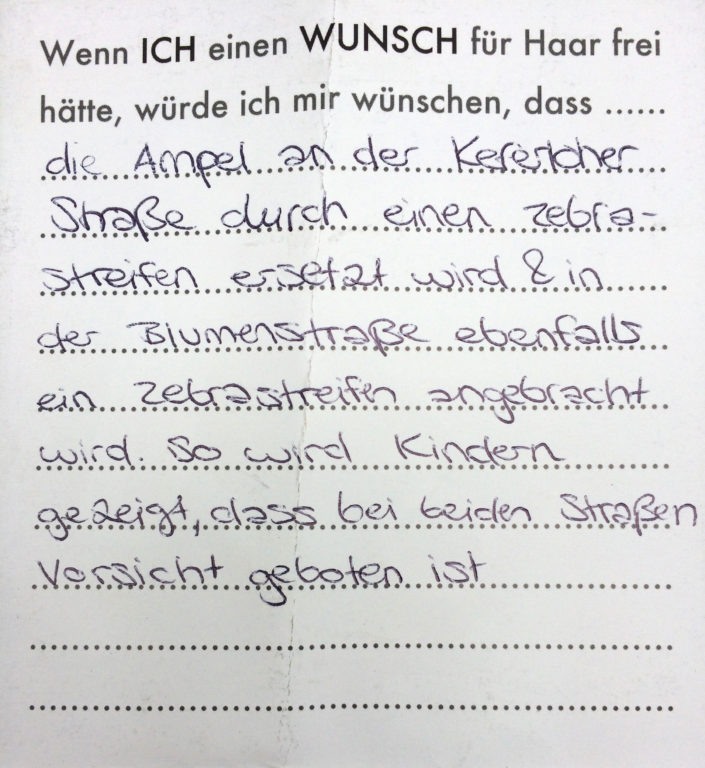 Wenn ICH einen WUNSCH für Haar frei
hätte, würde ich mir wünschen, dass ......
die Ampel an der
Straße durch einen zebra-
streifen ersetzt wird & in
der Blumenstraße ebenfalls
ein Zebrastreifen angebracht
wird. So wird Kindern
gezeigt, dass bei beiden Straßen
Vorsicht geboten ist